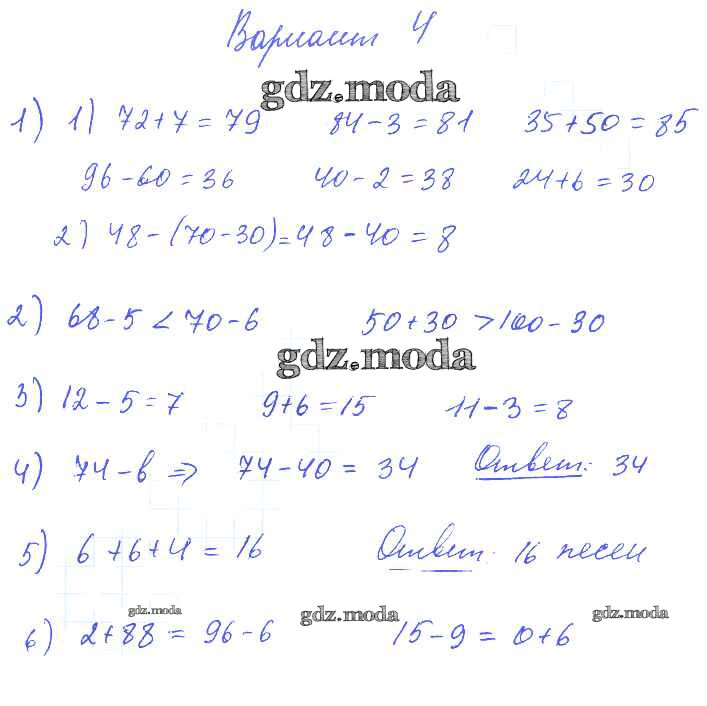 Вариант 4
gdz.moda
1) 1) 72+7=79 84-3=81 35+50=85
96-60=36 40-2=38 24+6=30
2) 48-(70-30)=48-40=8
2) 68-5<70-6 50+30>100-30
gdz.moda
3) 12-5=7 9+6=15 11-3=8
4) 74-в ⇒ 74-40=34 Ответ: 34
5) 6+6+4=16 Ответ: 16 песен
gdz.moda gdz.moda gdz.moda
6) 2+88=96-6 15-9=0+6